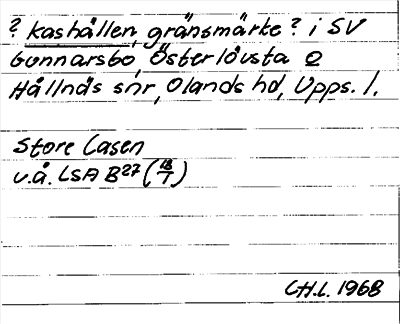 ? kashållen, gränsmärke? i SV
Gunnarsbo, Österlövsta O
Hållnäs snr, Olands hd, Upps. l.
Store Casen
u.å. LSA B27 (18/7)
CH.L. 1968